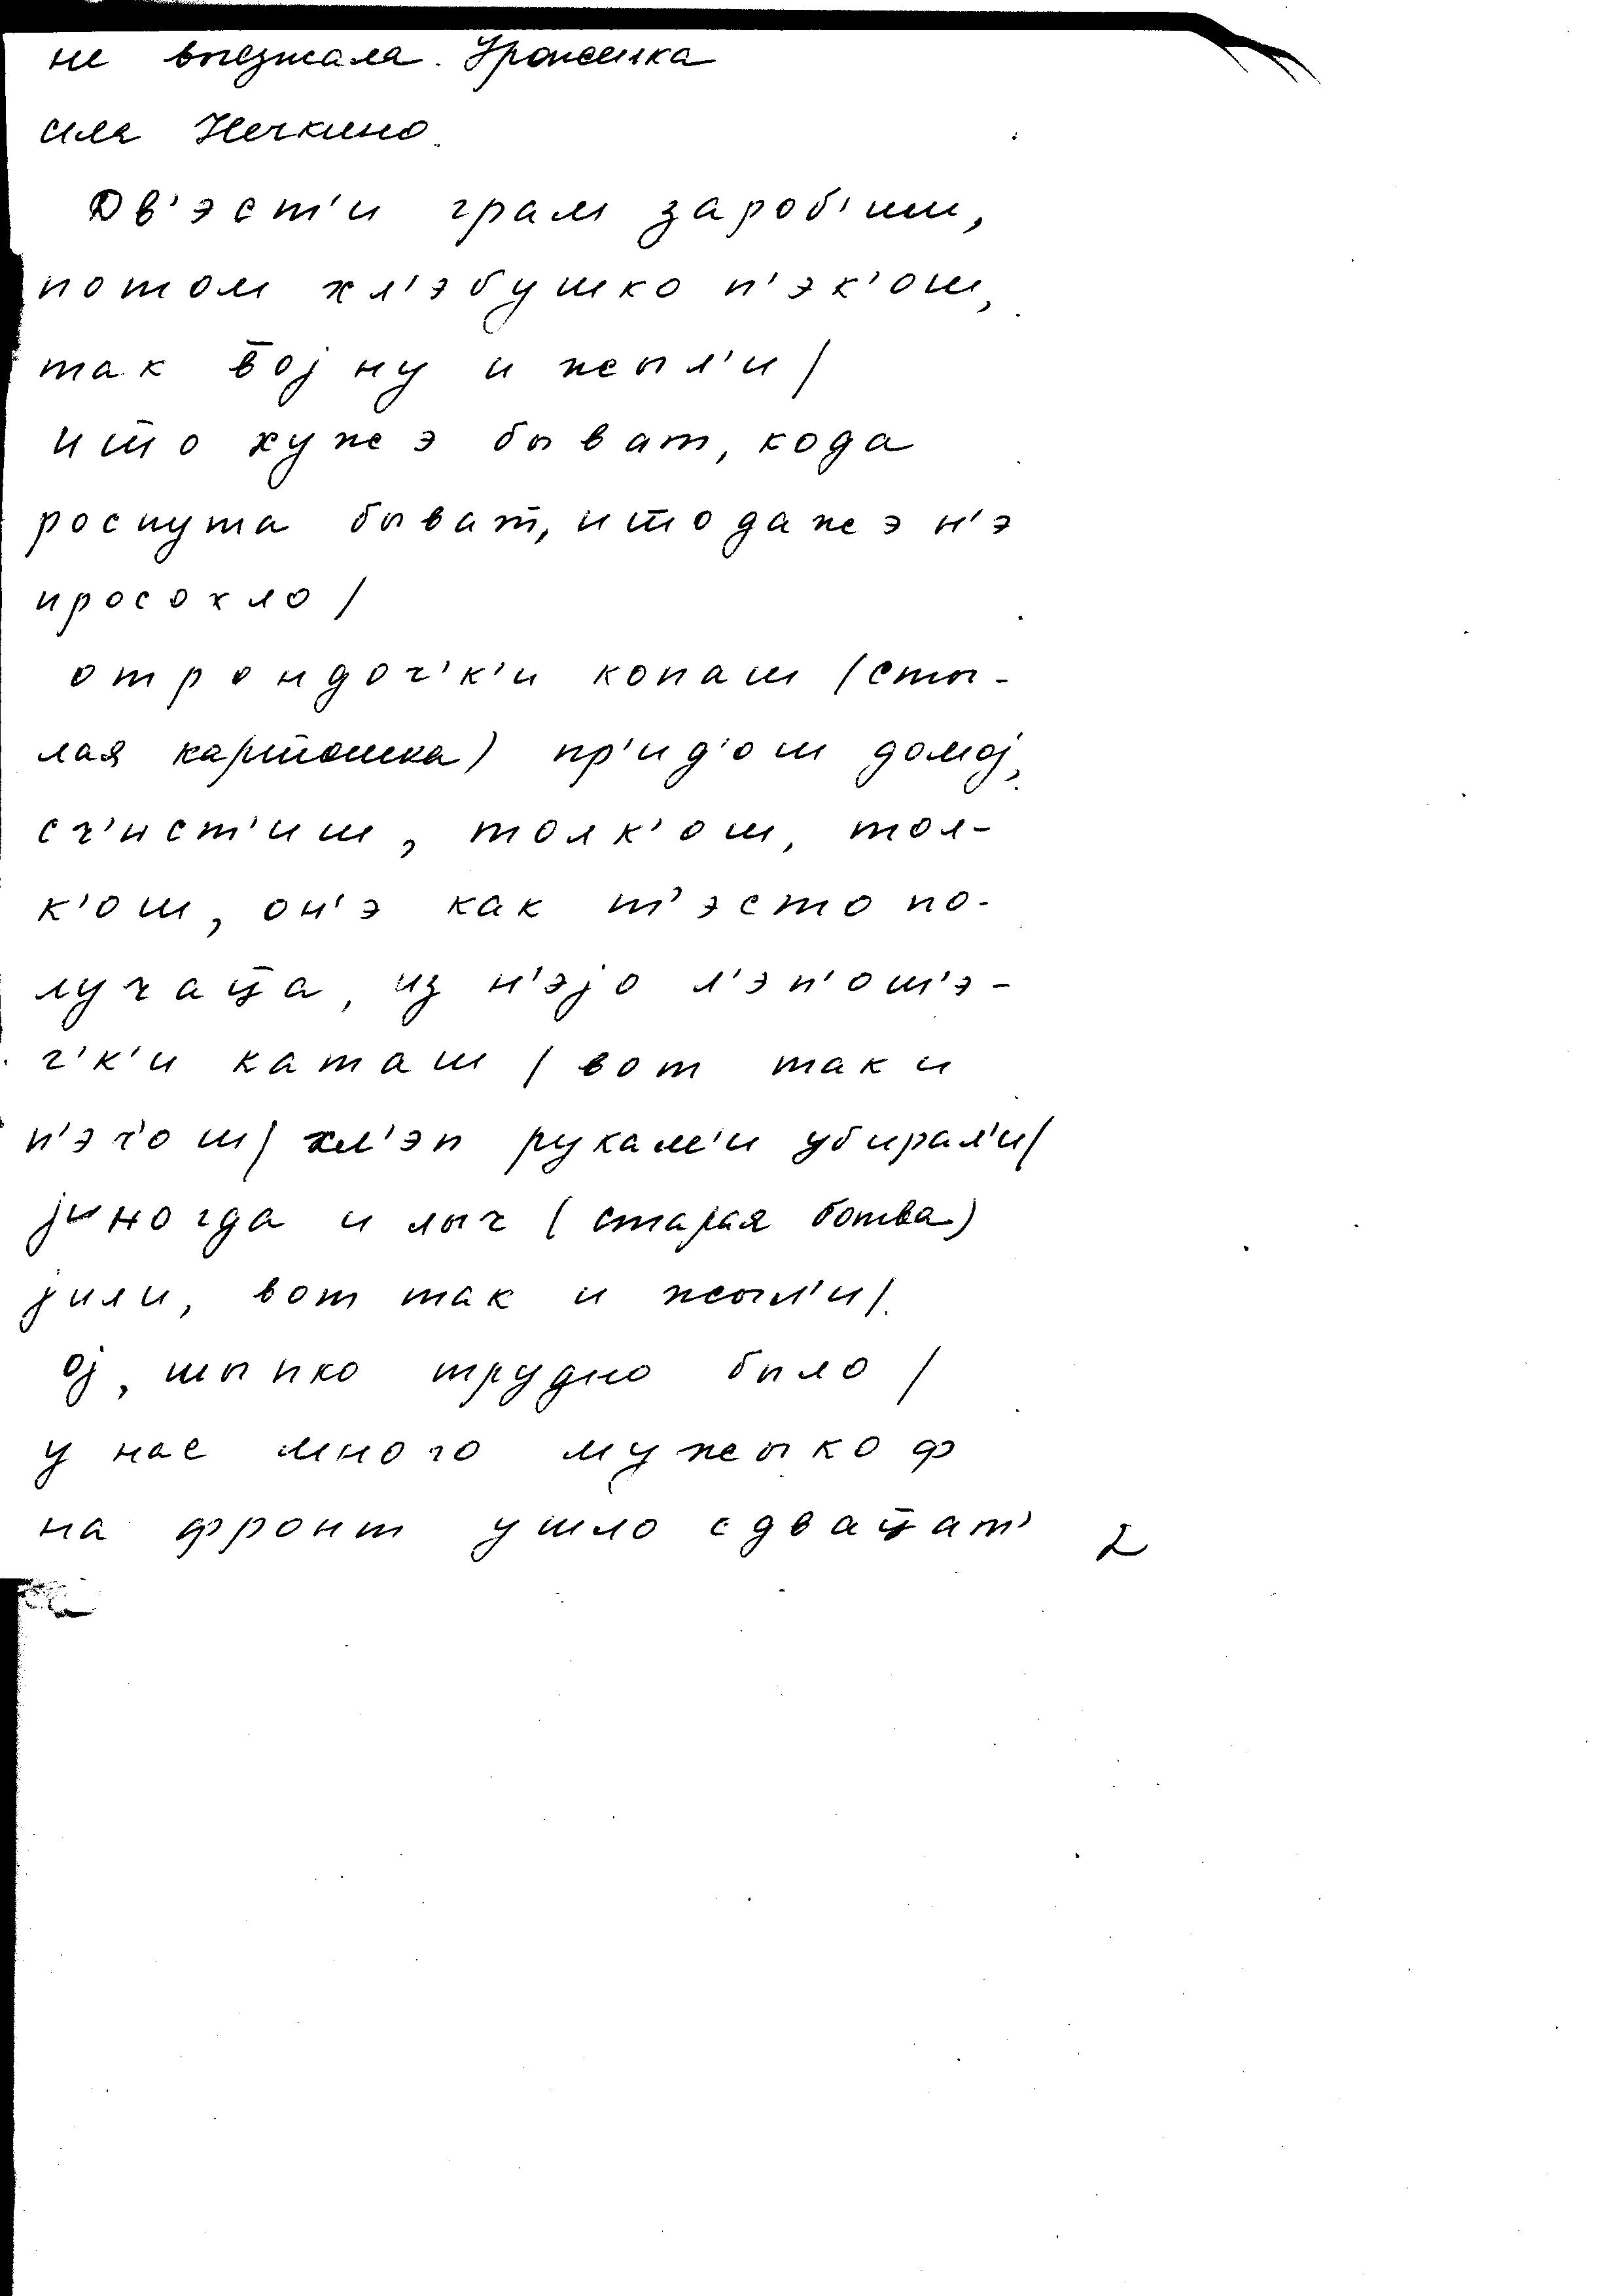 не выезжала. Уроженка
села Нечкино.
Дв'эст'и грам зароб'иш,
потом хл'эбушко п'эк'ош,
так в̄ојну и жыл'и/
ишто хужэ быват, кода
роспута быват, иштодажэ н'э
просохло/
отрондоч'к'и копаш (сты-
лая картошка) пр'ид'ош домој,
сч'ист'иш, толк'ош, тол-
к'ош, он'э как т'эсто по-
луча̄ца, из н'эјо л'эп'ош'э-
ч'к'и каташ / вот так и
п'эч'ош/ хл'эп рукам'и убирал'и/
јиногда и лыч (старая ботва)
јили, вот так и жыл'и/.
ој, шыпко трудно было/
у нас много мужыкоф
на фронт ушло сдвац̄ат'
2